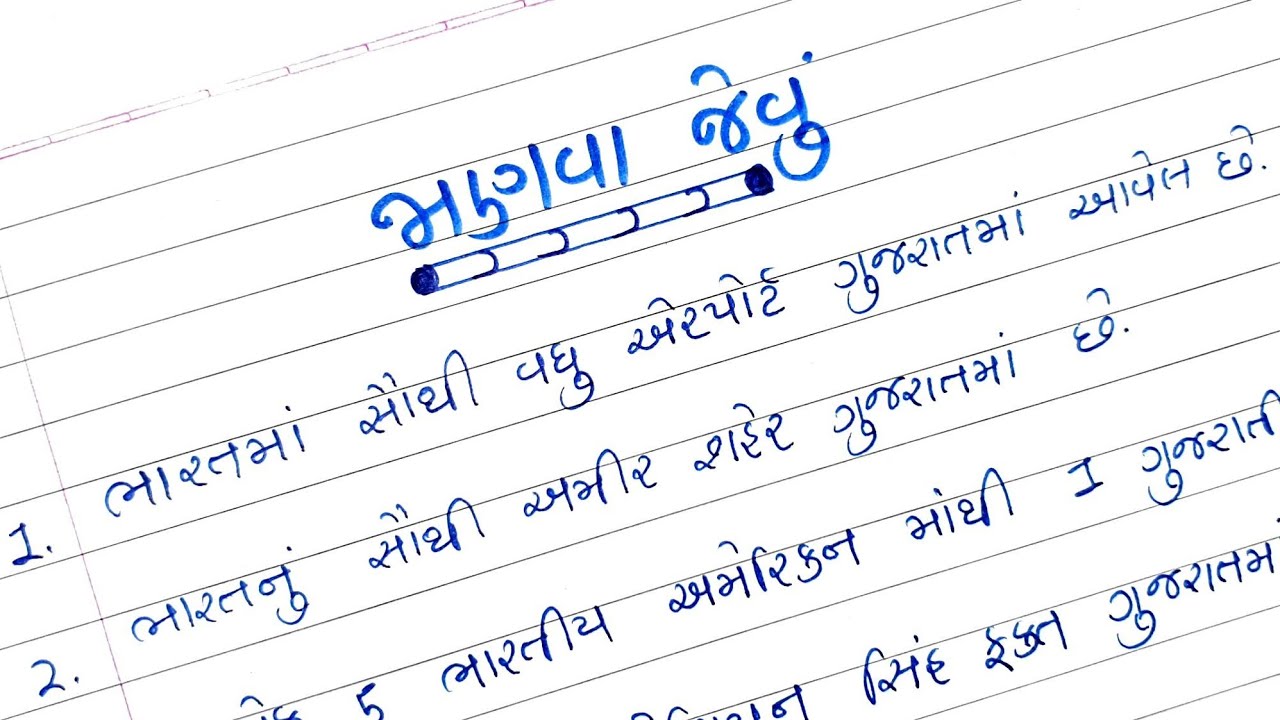 જાણવા જેવું
1. ભારતમાં સૌથી વધુ એરપોર્ટ ગુજરાતમાં આવેલ છે.
2. ભારતનું સૌથી અમીર શહેર ગુજરાતમાં છે.
5 ભારતીય અમેરિકન માંથી 1 ગુજરાતી
સિંહ ફક્ત ગુજરાતમાં